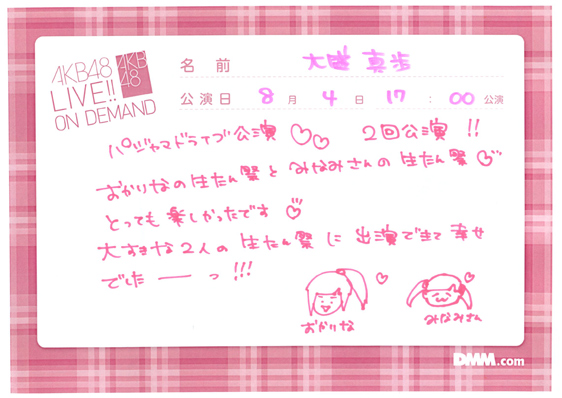 AKB48
LIVE!!
ON DEMAND
AKB
48
名前 大盛真歩
公演日 8月4日17:00公演
パジャマドライブ公演♡♡ 2回公演!!
おかりなの生たん祭とみなみさんの生たん祭♡
とっても楽しかったです♡
大すきな2人の生たん祭に出演できて幸せ
でしたーーっ!!!
おかりな
みなみさん
DMM.com